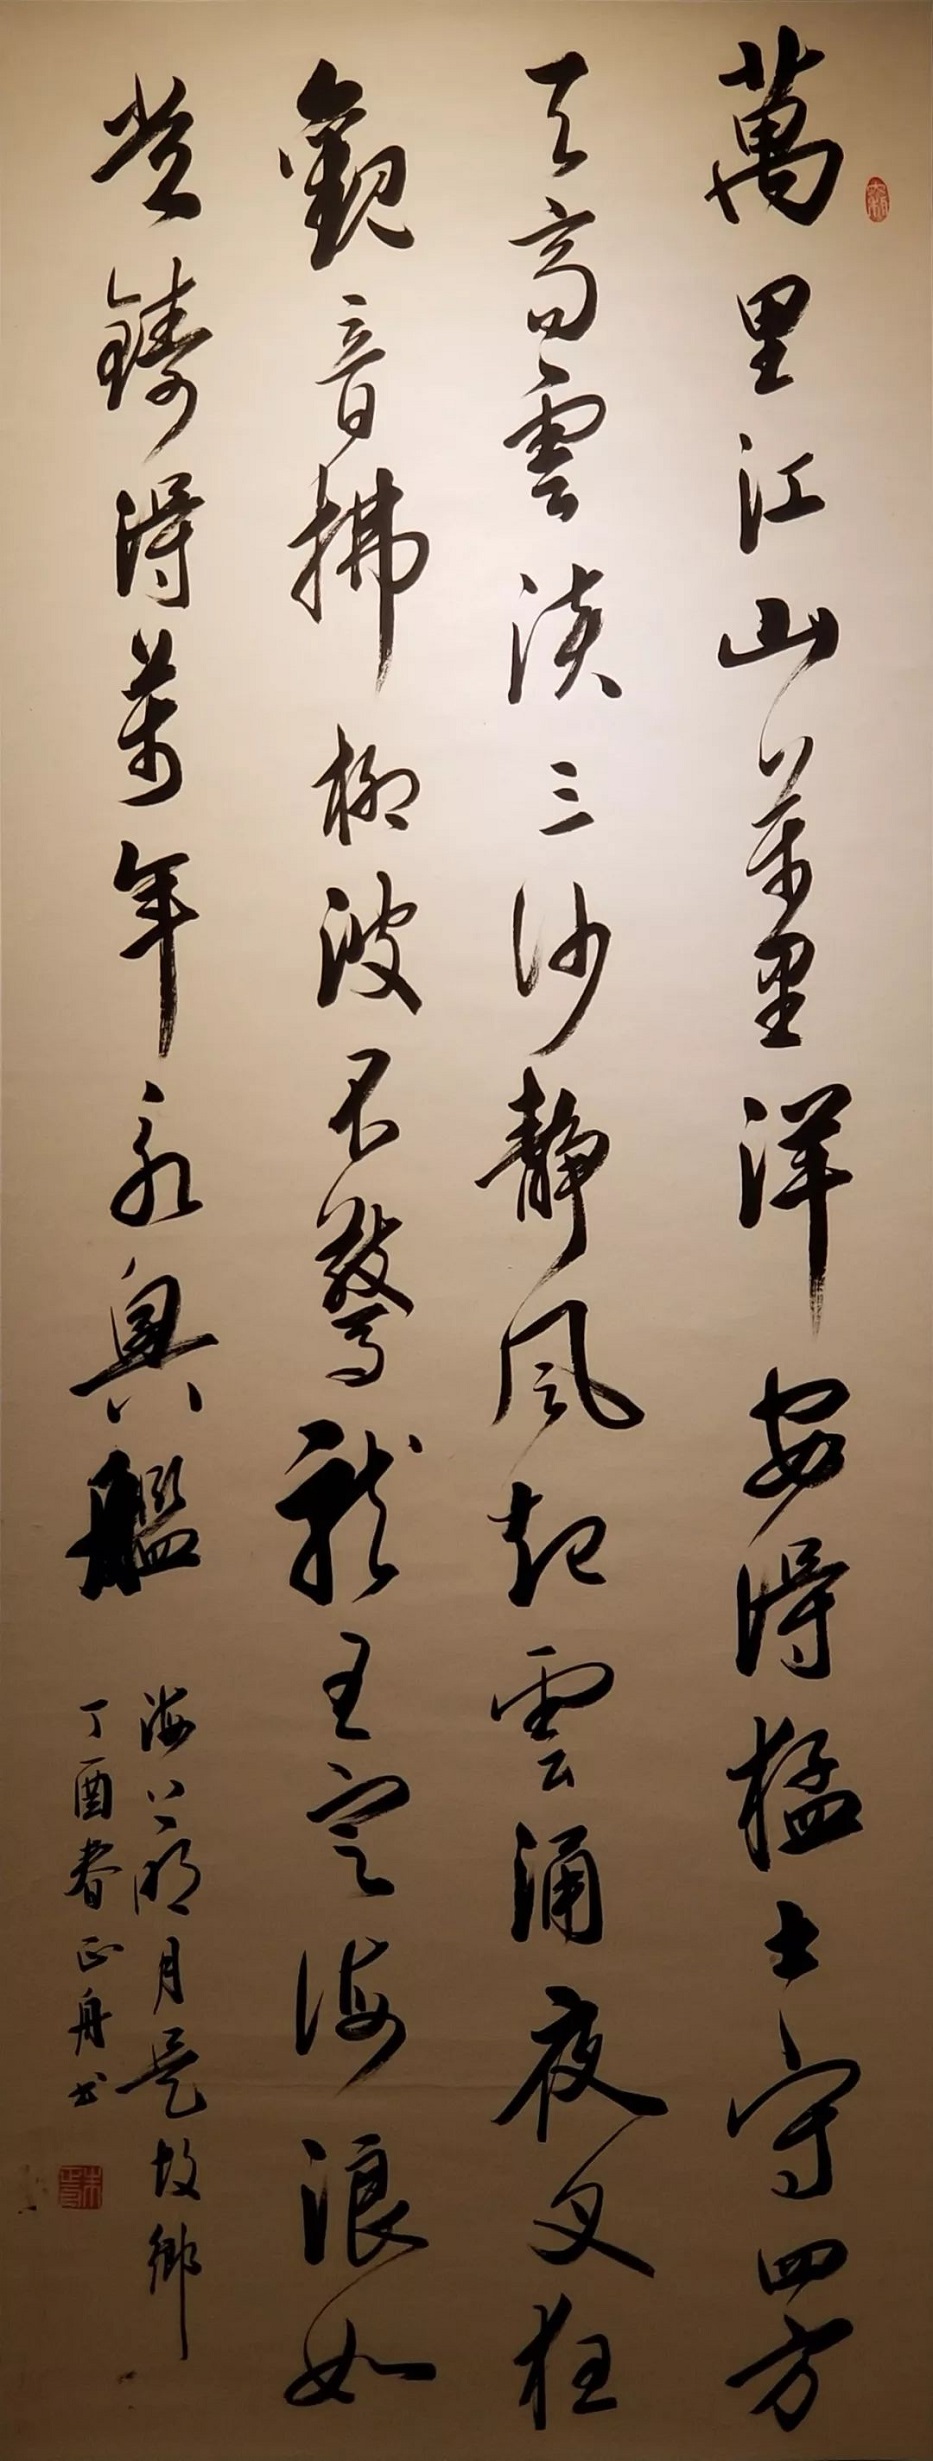 萬里江山萬里洋安得猛士守四方
天高雲淡三沙靜風起雲涌夜叉狂
觀音拂柳波不驚龍王定海浪如
鑄得萬年永興艦
海上明月是故鄉
丁酉春正舟书